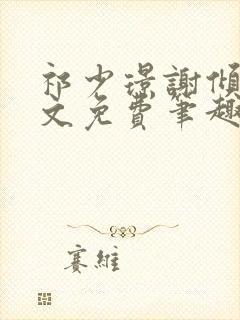 祁少璟謝傾
文免費筆趣
賽維